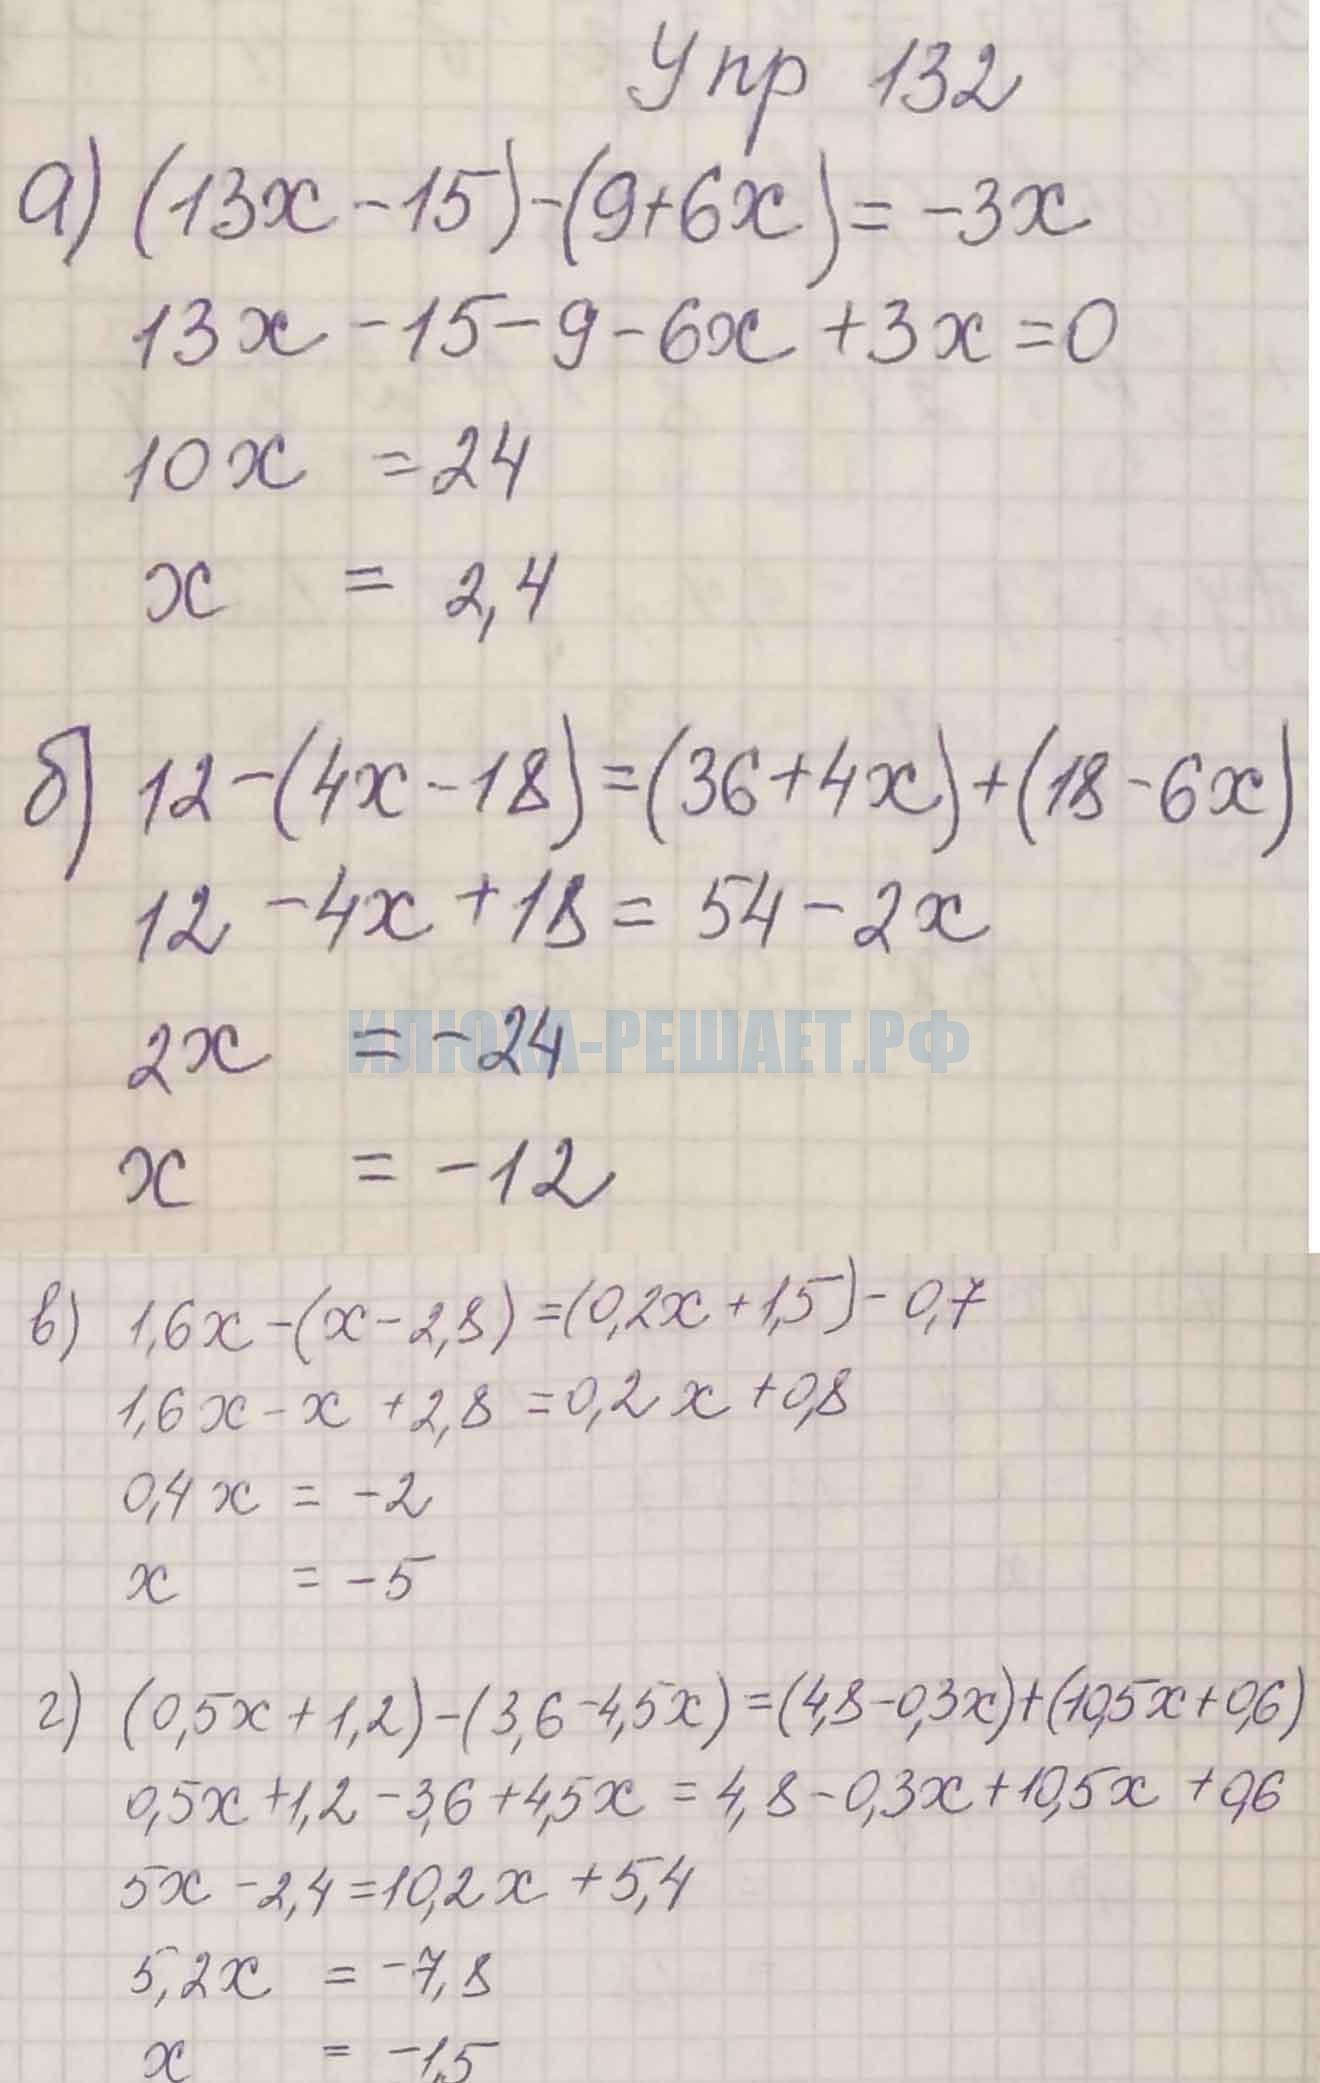 Упр 132
а) (13x - 15) - (9 + 6x) = -3x
13x - 15 - 9 - 6x + 3x = 0
10x = 24
x = 2,4
б) 12 - (4x - 18) = (36 + 4x) + (18 - 6x)
12 - 4x + 18 = 54 - 2x
2x = -24
ИЛЮХА-РЕШАЕТ.РФ
x = -12
в) 1,6x - (x - 2,8) = (0,2x + 1,5) - 0,7
1,6x - x + 2,8 = 0,2x + 0,8
0,4x = -2
x = -5
г) (0,5x + 1,2) - (3,6 - 4,5x) = (4,8 - 0,3x) + (10,5x + 0,6)
0,5x + 1,2 - 3,6 + 4,5x = 4,8 - 0,3x + 10,5x + 0,6
5x - 2,4 = 10,2x + 5,4
5,2x = -7,8
x = -1,5